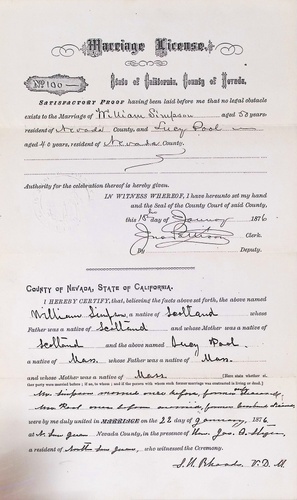 Marriage License.
No 100
State of California, County of Nevada.
SATISFACTORY PROOF having been laid before me that no legal obstacle
exists to the Marriage of William Simpson aged 50 years
resident of Nevada County, and Lucy Pool
aged 40 years, resident of Nevada County.
Authority for the celebration thereof is hereby given.
IN WITNESS WHEREOF, I have hereunto set my hand
and the Seal of the County Court of said County,
this 18th day of January 1876
Jno Clerk.
By Deputy.
COUNTY OF NEVADA, STATE OF CALIFORNIA.
I HEREBY CERTIFY, that, believing the facts above set forth, the above named
William Simpson, a native of Scotland whose
Father was a native of Scotland and whose Mother was a native of
Scotland and the above named Lucy Pool
a native of Mass. whose Father was a native of Mass.
and whose Mother was a native of Mass.
that party were married before; if so, to whom; and if the person with whom such former marriage was contracted is living or dead;
Mr. Simpson married once before, former
Mrs Pool once before married, former husband
were by me duly united in MARRIAGE on the 22 day of January 1876
at N. San Juan Nevada County, in the presence of Hon. Jno. A.
a resident of North San Juan, who witnessed the Ceremony.